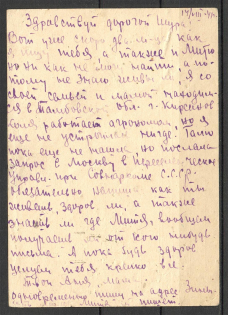 14/VIII-41г.
Здравствуй дорогой Шура
Вот уже скоро два м-ца как
я ищу тебя а также и Митю
но ни как не могу найти, а по
тому не знаю живы ли. Я со
своей семьей и мамой находим
ся в Тамбовской обл. г. Кирсанов
Коля работает агрономом, но я
еще не устроилась нигде. Таню
пока еще не нашла но послала
запрос в Москву в Переселенческое
Управ. при Совнаркоме С.С.С.Р.
обязательно напиши как ты
живешь здоров ли, а также
знаешь ли где Митя, вообще
получаешь ли от кого нибудь
письма. Я пока будь здоров
целую тебя крепко
твоя Аня, Мама
одновременно пишу на адрес
Митя пишет